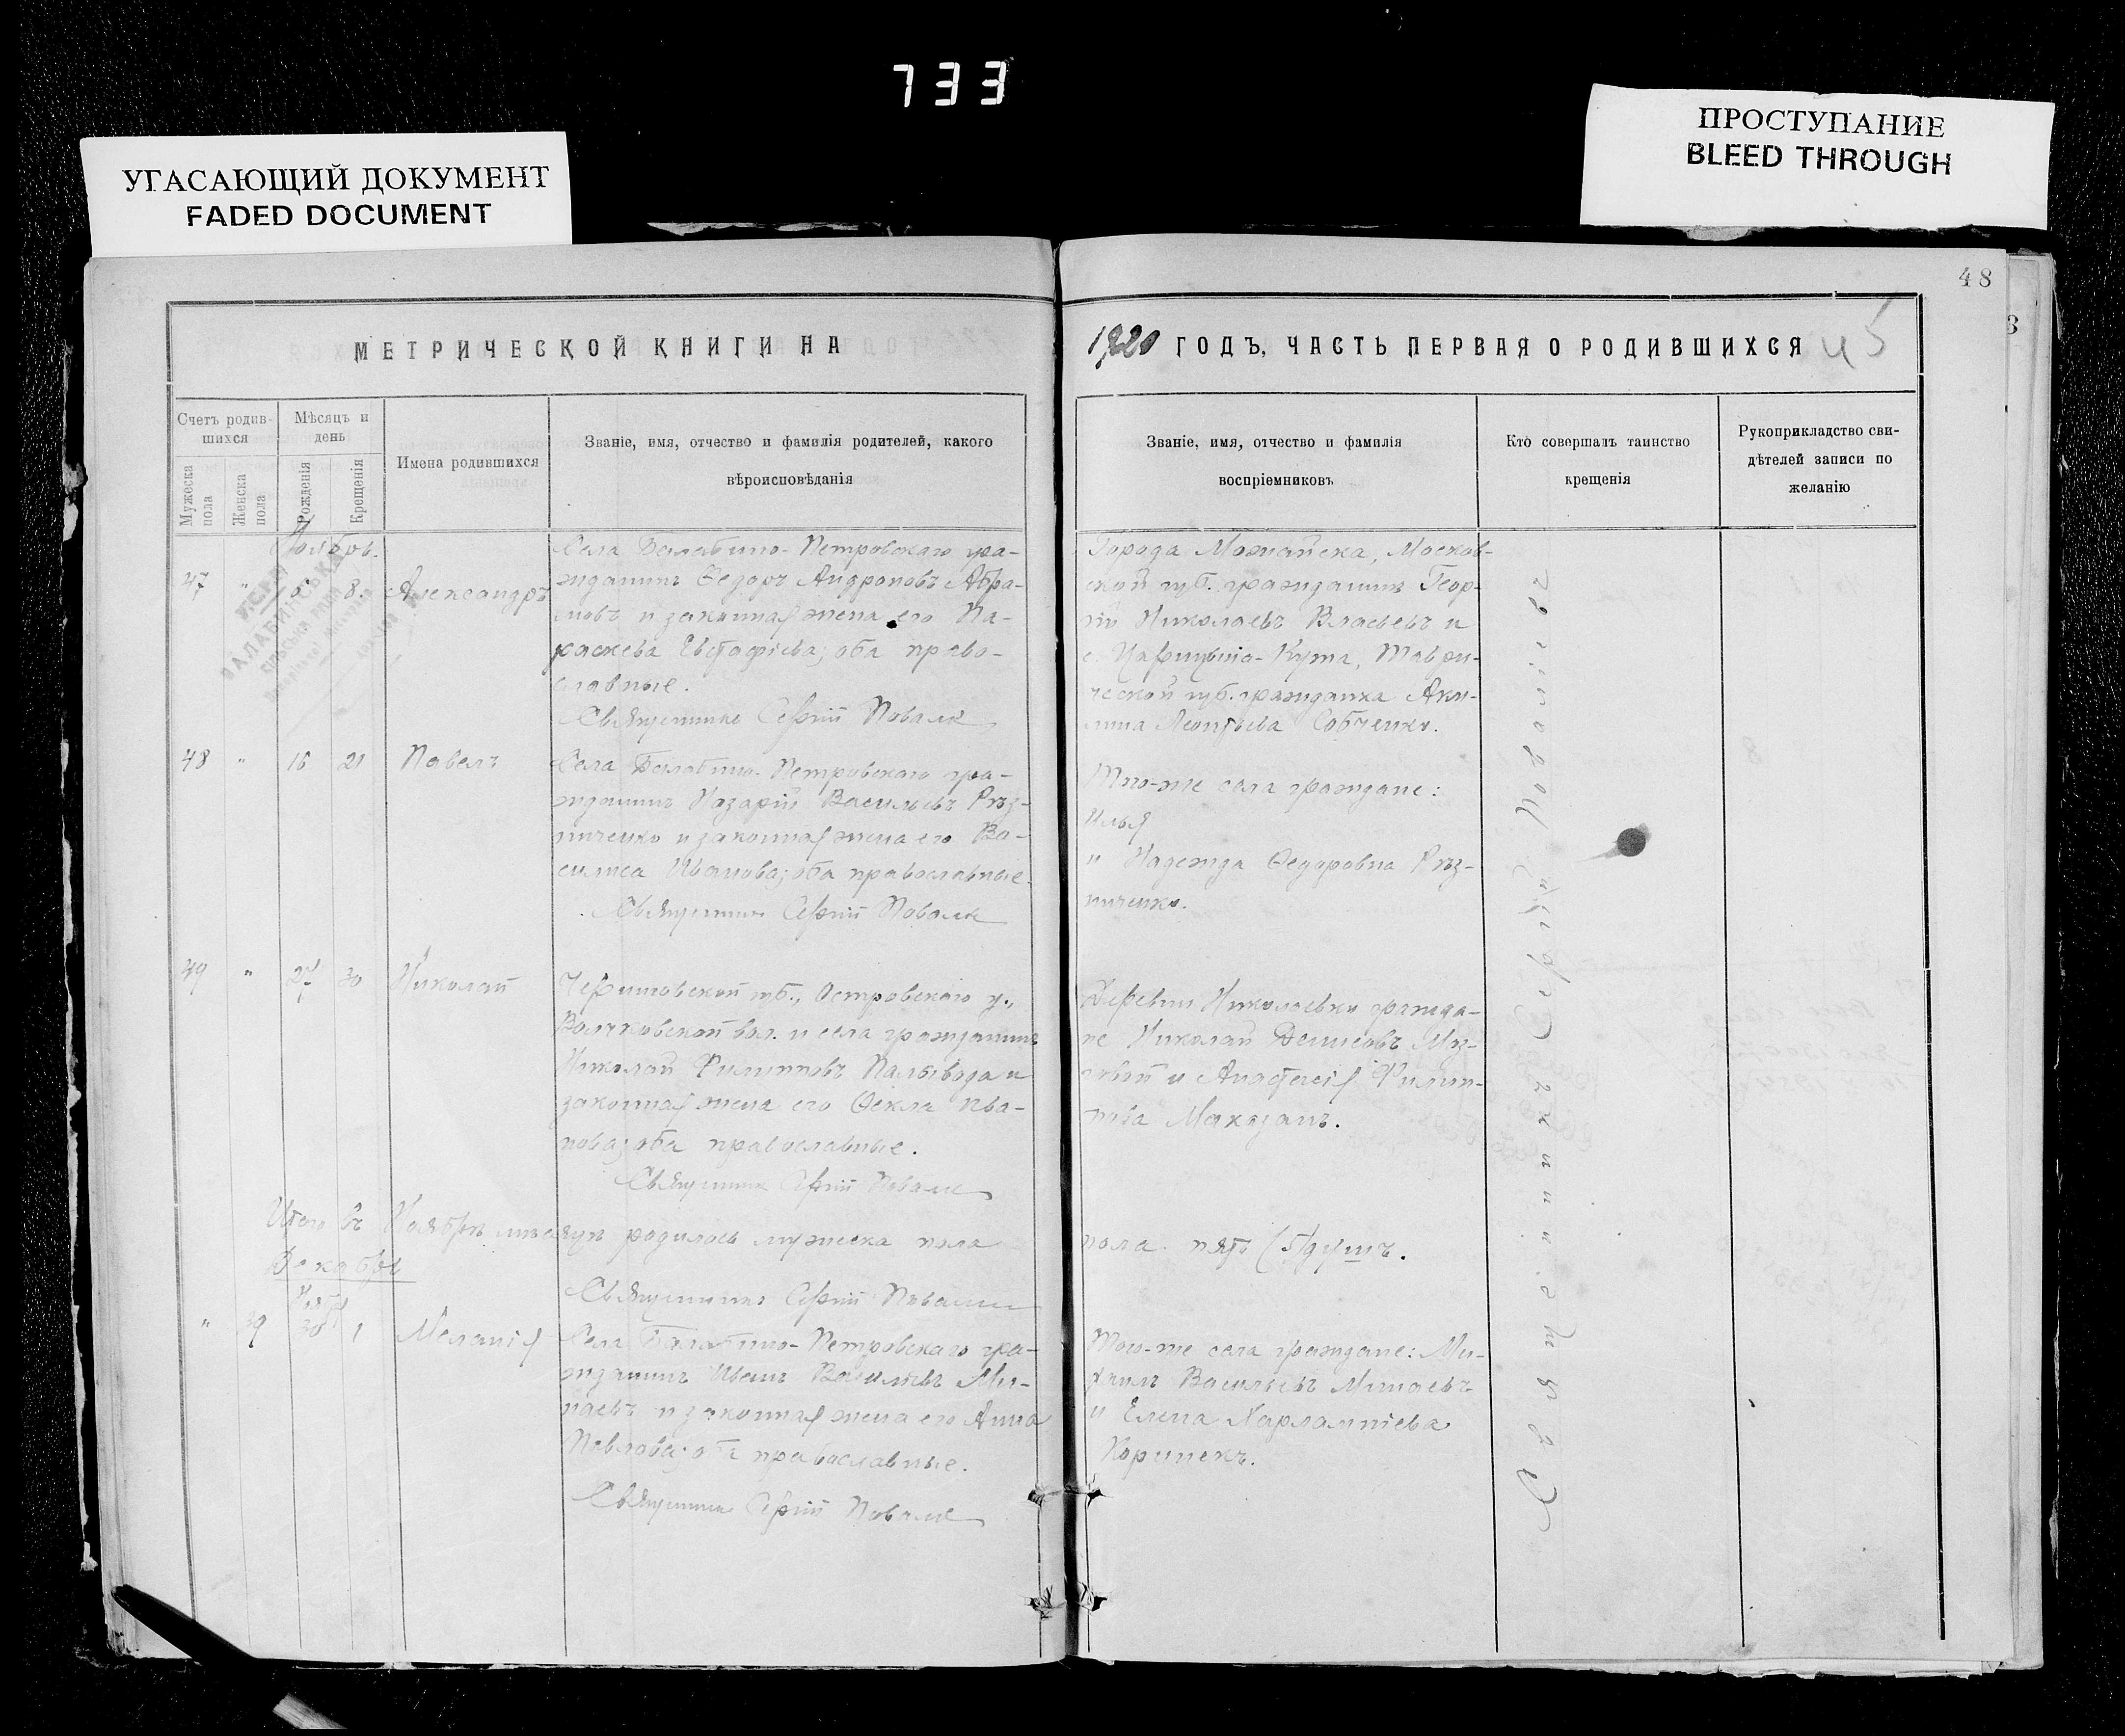 733
УГАСАЮЩИЙ ДОКУМЕНТ
FADED DOCUMENT
ПРОСТУПАНИЕ
BLEED THROUGH
48
МЕТРИЧЕСКОЙ КНИГИ НА
1920 ГОДЪ, ЧАСТЬ ПЕРВАЯ О РОДИВШИХСЯ
45
Счетъ родив-
шихся
Мѣсяцъ и
день
Мужеска
пола
Женска
пола
Рожденія
Крещенія
Имена родившихся
Званіе, имя, отчество и фамилія родителей, какого
вѣроисповѣданія
Званіе, имя, отчество и фамилія
воспріемниковъ
Кто совершалъ таинство
крещенія
Рукоприкладство сви-
дѣтелей записи по
желанію
Ноябрь.
47 " 6 8. Александръ
Села Балабино-Петровскаго гра-
жданинъ Ѳедоръ Андроновъ Абра-
мовъ и законная жена его Па-
раскева Евстафіева; оба право-
славные.
Священникъ Сергій
Города Можайска, Москов-
ской губ. гражданинъ Геор-
гій Николаевъ Власьевъ и
с. Царицыно-Кута, Таври-
ческой губ. гражданка Аки-
лина Леонтьева Собченко.
48 " 16 21 Павелъ
Села Балабино-Петровскаго гра-
жданинъ Назарій Васильевъ Рѣз-
ниченко и законная жена его Ва-
силиса Иванова; оба православные.
Священникъ Сергій
Того-же села граждане:
Илья
и Надежда Ѳедоровна Рѣз-
ниченко.
49 " 27 30 Николай
Черниговской губ., Островскаго у.,
вол. и села гражданинъ
Николай Филипповъ Паливода и
законная жена его Ѳекла Ива-
нова; оба православные.
Священникъ Сергій
Деревни Николаевки гражда-
не Николай Денисовъ
и Анастасія Филип-
пова
Итого въ Ноябрѣ мѣсяцѣ родилось мужеска пола
пола пять (5) душъ.
Священникъ Сергій
Декабрь
Ноябр
" 39 30 1 Меланія
Села Балабино-Петровскаго гра-
жданинъ Иванъ Васильевъ Ми-
наевъ и законная жена его Анна
Павлова; оба православные.
Священникъ Сергій
Того-же села граждане: Ми-
хаилъ Васильевъ Минаевъ
и Елена Харлампіева
Коринекъ.
Священникъ Сергій